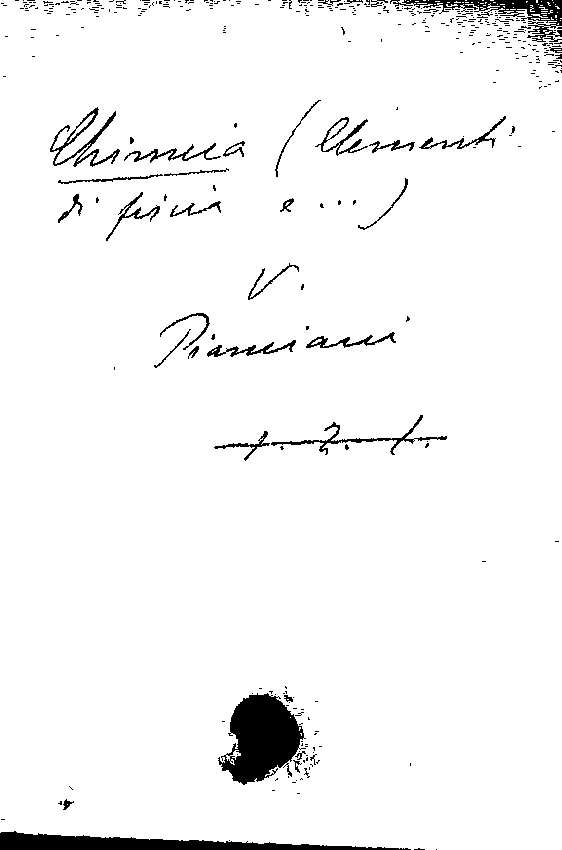 Chimica (Elementi
di fisica e ...)
V.
Pianciani